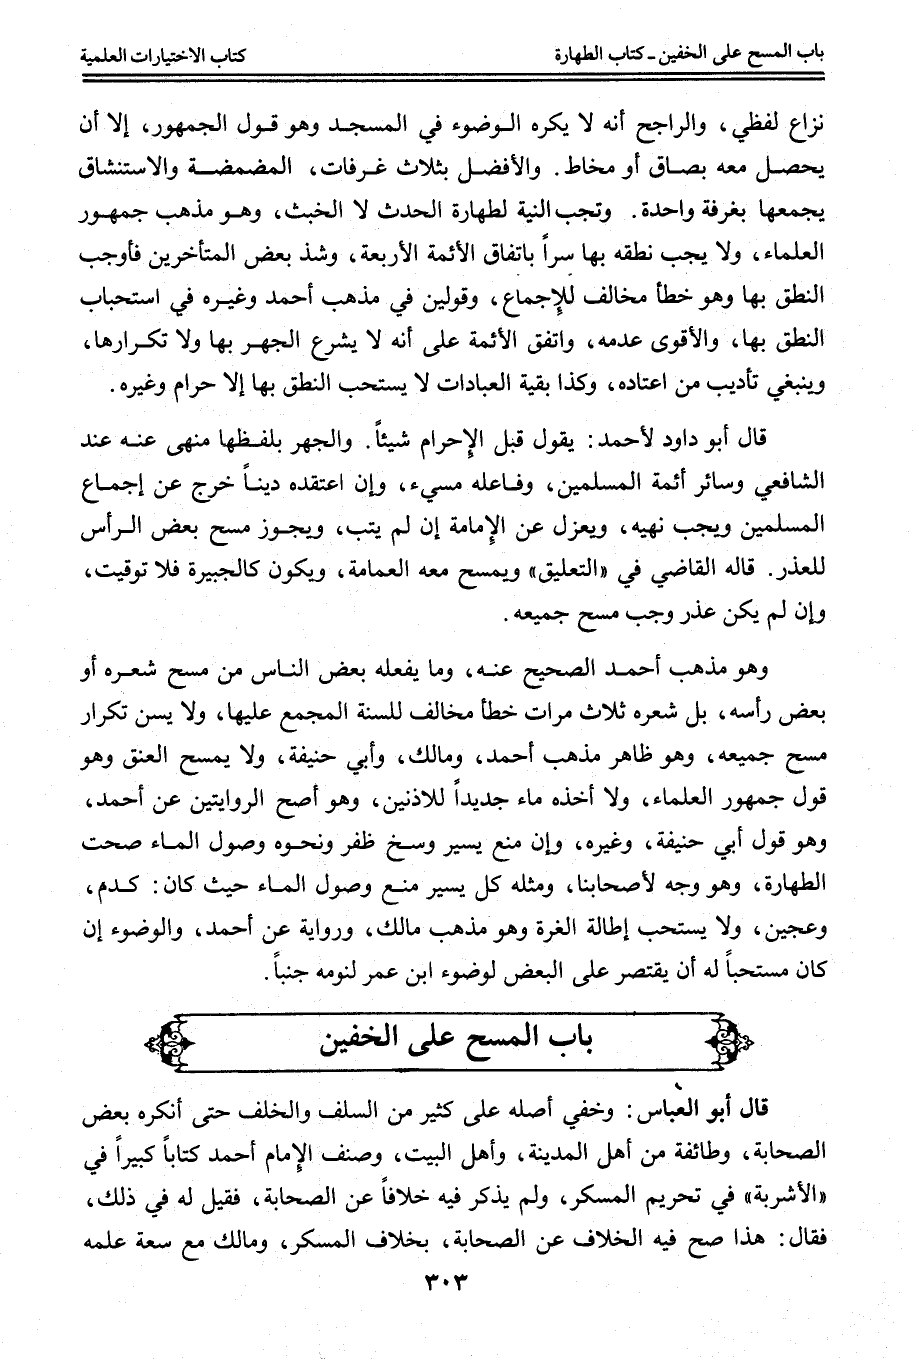 باب المسح على الخفين ـ كتاب الطهارة
كتاب الاختيارات العلمية
نزاع لفظي، والراجح أنه لا يكره الوضوء في المسجد وهو قول الجمهور، إلا أن
يحصل معه بصاق أو مخاط. والأفضل بثلاث غرفات، المضمضة والاستنشاق
يجمعها بغرفة واحدة. وتجب النية لطهارة الحدث لا الخبث، وهو مذهب جمهور
العلماء، ولا يجب نطقه بها سراً باتفاق الأئمة الأربعة، وشذ بعض المتأخرين فأوجب
النطق بها وهو خطأ مخالف للإجماع، وقولين في مذهب أحمد وغيره في استحباب
النطق بها، والأقوى عدمه، واتفق الأئمة على أنه لا يشرع الجهر بها ولا تكرارها،
وينبغي تأديب من اعتاده، وكذا بقية العبادات لا يستحب النطق بها إلا حرام وغيره.
قال أبو داود لأحمد: يقول قبل الإحرام شيئاً. والجهر بلفظها منهى عنه عند
الشافعي وسائر أئمة المسلمين، وفاعله مسيء، وإن اعتقده ديناً خرج عن إجماع
المسلمين ويجب نهيه، ويعزل عن الإمامة إن لم يتب، ويجوز مسح بعض الرأس
للعذر. قاله القاضي في «التعليق» ويمسح معه العمامة، ويكون كالجبيرة فلا توقيت،
وإن لم يكن عذر وجب مسح جميعه.
وهو مذهب أحمد الصحيح عنه، وما يفعله بعض الناس من مسح شعره أو
بعض رأسه، بل شعره ثلاث مرات خطأ مخالف للسنة المجمع عليها، ولا يسن تكرار
مسح جميعه، وهو ظاهر مذهب أحمد، ومالك، وأبي حنيفة، ولا يمسح العنق وهو
قول جمهور العلماء، ولا أخذه ماء جديداً للاذنين، وهو أصح الروايتين عن أحمد،
وهو قول أبي حنيفة، وغيره، وإن منع يسير وسخ ظفر ونحوه وصول الماء صحت
الطهارة، وهو وجه لأصحابنا، ومثله كل يسير منع وصول الماء حيث كان: كدم،
وعجين، ولا يستحب إطالة الغرة وهو مذهب مالك، ورواية عن أحمد، والوضوء إن
كان مستحباً له أن يقتصر على البعض لوضوء ابن عمر لنومه جنباً.
باب المسح على الخفين
قال أبو العباس: وخفي أصله على كثير من السلف والخلف حتى أنكره بعض
الصحابة، وطائفة من أهل المدينة، وأهل البيت، وصنف الإمام أحمد كتاباً كبيراً في
«الأشربة» في تحريم المسكر، ولم يذكر فيه خلافاً عن الصحابة، فقيل له في ذلك،
فقال: هذا صح فيه الخلاف عن الصحابة، بخلاف المسكر، ومالك مع سعة علمه
٣٠٣